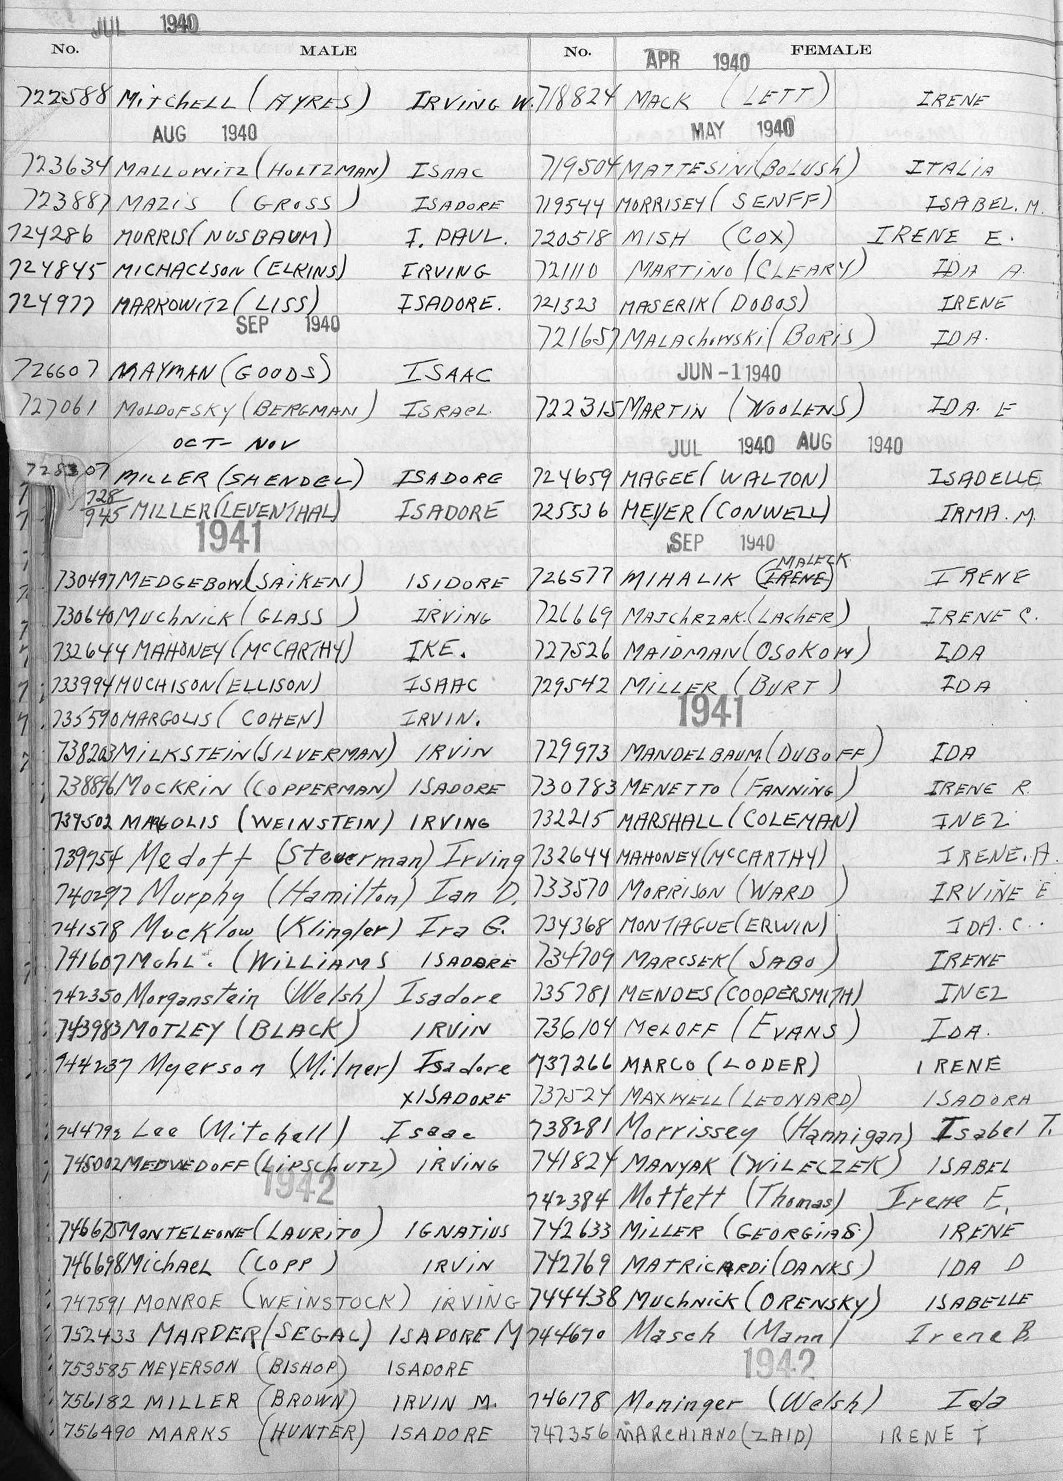 JUL 1940
No. MALE
722588 MITCHELL (AYRES) IRVING W.
AUG 1940
723634 MALLOWITZ (HOLTZMAN) ISAAC
723887 MAZIS (GROSS) ISADORE
724286 MORRIS (NUSBAUM) I. PAUL.
724845 MICHAELSON (ELKINS) IRVING
724977 MARKOWITZ (LISS) ISADORE.
SEP 1940
726607 MAYMAN (GOODS) ISAAC
727061 MOLDOFSKY (BERGMAN) ISRAEL
OCT- NOV
728307 MILLER (SHENDEL) ISADORE
728/945 MILLER (LEVENTHAL) ISADORE
1941
730497 MEDGEBOW (SAIKEN) ISIDORE
730640 MUCHNICK (GLASS) IRVING
732644 MAHONEY (McCARTHY) IKE.
733994 MUCHISON (ELLISON) ISAAC
735590 MARGOLIS (COHEN) IRVIN.
738203 MILKSTEIN (SILVERMAN) IRVIN
738896 MOCKRIN (COPPERMAN) ISADORE
739502 MARGOLIS (WEINSTEIN) IRVING
739754 Medoff (Steuerman) Irving
740297 Murphy (Hamilton) Ian D.
741578 Mucklow (Klingler) Ira G.
741607 MOHL. (WILLIAMS ISADORE
742350 Morganstein (Welsh) Isadore
743983 MOTLEY (BLACK) IRVIN
744237 Myerson (Milner) Isadore
X ISADORE
744792 Lee (Mitchell) Isaac
745002 MEDVEDOFF (LIPSCHUTZ) IRVING
1942
746675 MONTELEONE (LAURITO) IGNATIUS
746698 MICHAEL (COPP) IRVIN
747591 MONROE (WEINSTOCK) IRVING
752433 MARDER (SEGAL) ISADORE M
753585 MEYERSON (BISHOP) ISADORE
756182 MILLER (BROWN) IRVIN M.
756490 MARKS (HUNTER) ISADORE
No. FEMALE
APR 1940
718824 MACK (LETT) IRENE
MAY 1940
719504 MATTESINI (BOLUSH) ITALIA
719544 MORRISEY (SENFF) ISABEL. M.
720518 MISH (COX) IRENE E.
721110 MARTINO (CLEARY) IDA A.
721323 MASERIK (DOBOS) IRENE
721657 MALACHOWSKI (BORIS) IDA.
JUN -1 1940
722315 MARTIN (WOOLENS) IDA. E
JUL 1940 AUG 1940
724659 MAGEE (WALTON) ISADELLE
725536 MEYER (CONWELL) IRMA. M.
SEP 1940
MALECK
726577 MIHALIK (IRENE) IRENE
726669 MAJCHRZAK. (LACHER) IRENE C.
727526 MAIDMAN (OSOKOW) IDA
729542 MILLER (BURT) IDA
1941
729973 MANDELBAUM (DUBOFF) IDA
730783 MENETTO (FANNING) IRENE R.
732215 MARSHALL (COLEMAN) INEZ
732644 MAHONEY (McCARTHY) IRENE. A.
733570 MORRISON (WARD) IRVINE E
734368 MONTAGUE (ERWIN) IDA. C.
734709 MARCSEK (SABO) IRENE
735781 MENDES (COOPERSMITH) INEZ
736104 MELOFF (EVANS) IDA.
737266 MARCO (LODER) IRENE
737524 MAXWELL (LEONARD) ISADORA
738281 Morrissey (Hannigan) Isabel T.
741824 MANYAK (WILECZEK) ISABEL
742384 Mottett (Thomas) Irene E.
742633 MILLER (GEORGIAS) IRENE
742769 MATRICARDI (DANKS) IDA D
744438 MUCHNICK (ORENSKY) ISABELLE
744670 Masch (Mann) Irene B.
1942
746178 Moninger (Welsh) Ida
747356 MARCHIANO (ZAID) IRENE T